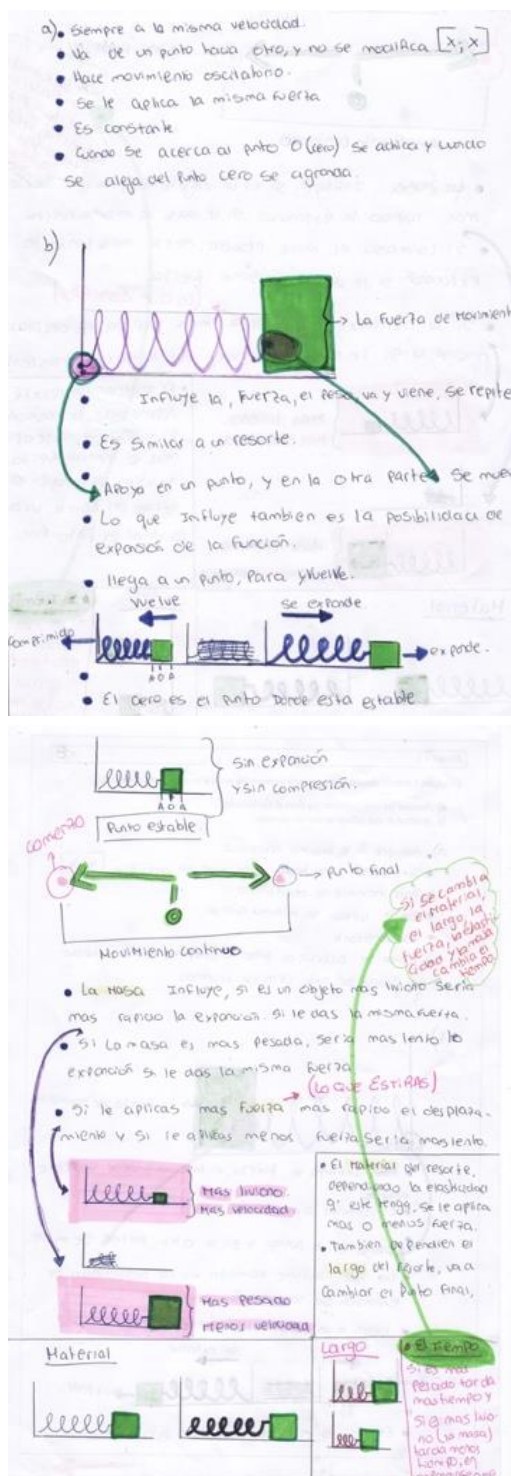 a) • Siempre a la misma velocidad.
• Va de un punto hacia otro, y no se modifica [x; x]
• Hace movimiento oscilatorio.
• Se le aplica la misma fuerza
• Es constante
• Cuando se acerca al punto 0 (cero) se achica y cuando
se aleja del punto cero se agranda
b)
La Fuerza de Movimient
• Influye la, fuerza, el peso, va y viene, se repite
• Es similar a un resorte.
• Apoya en un punto, y en la otra parte se muev
• Lo que Influye tambien es la posibilidad de
expansión de la función.
• llega a un punto, Para y Vuelve.
Vuelve
Se expande
Comprimido
expande.
A O A
• El cero es el punto Donde esta estable
Sin expansión
y sin compresión.
A O A
Punto estable
comenzo
Punto final
Movimiento continuo
Si se cambia
el Material,
el largo, la
fuerza, la elasti
cidad y la masa
cambia el
tiempo
• La masa Influye, si es un objeto mas liviano seria
mas rapido la expancion si le das la misma fuerza.
• Si La masa es mas pesada, seria mas lento la
expancion si le das la misma fuerza
(LO QUE ESTIRAS)
• Si le aplicas mas fuerza mas rapido el desplaza-
miento y si le aplicas menos fuerza seria mas lento.
Mas liviano
Mas velocidad
Mas pesado
Menos velocidad
• El Material del resorte,
dependiendo la elasticidad
q' este tenga, se le aplica
mas o menos fuerza.
• Tambien dependien el
largo del resorte, va a
cambiar el Punto final,
Material
Largo
• El Tiempo
Si es mas
pesado tarda
mas tiempo y
Si es mas livia
no (la masa)
tarda menos
tiempo, en